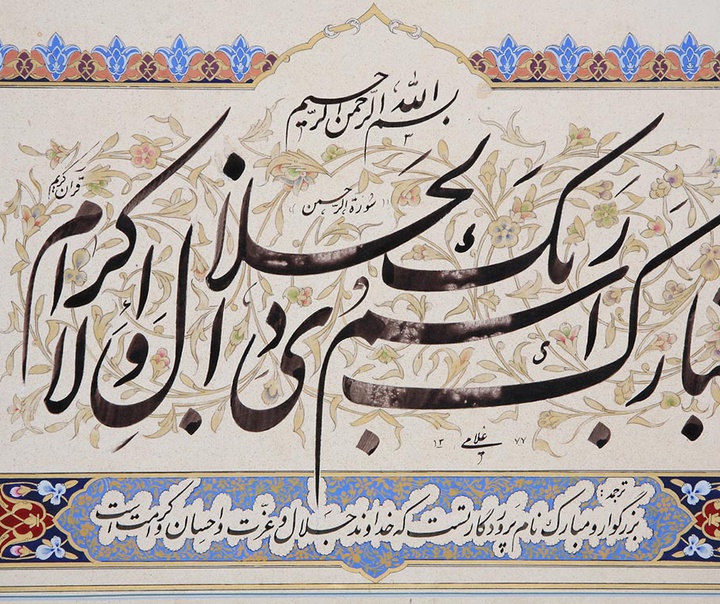 بسم الله الرحمن الرحیم
قرآن کریم
سورة الرحمن
تبارک اسم ربک ذی الجلال و الاکرام
غلامی ۱۳۷۷
ترجمه:
بزرگوار و مبارک نام پروردگارتست که خداوند جلال و عزت و احسان و کرامت است